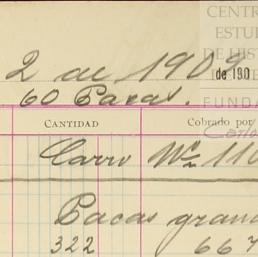 CENTR
ESTU
DE HIST
2 de 1909
de 190
60 Pacas.
FUNDA
CANTIDAD Cobrado por
Carlo
Carro No 110
Pacas grand
322 667